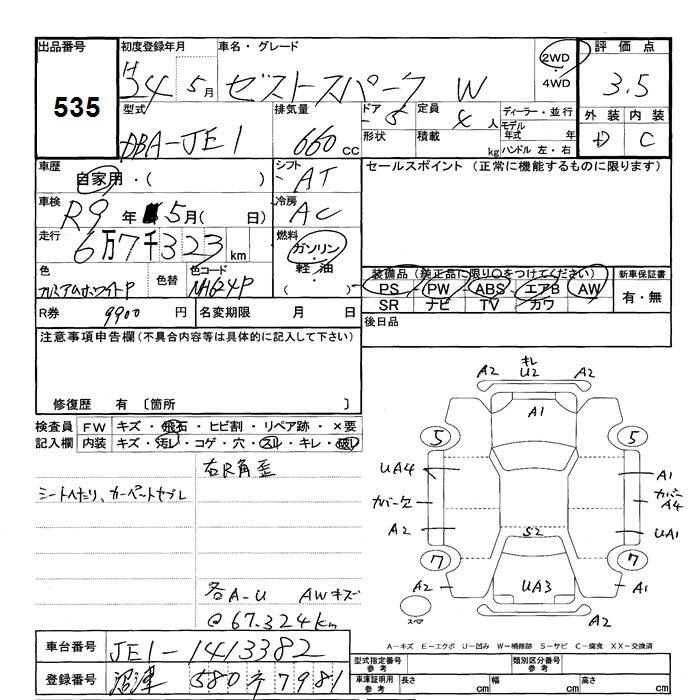 出品番号 初度登録年月 車名・グレード 2WD 評価点
535 H 24 5月 ゼストスパーク W ・ 4WD 3.5
型式 排気量 ドア 定員 ディーラー・並行 外装 内装
DBA-JE1 660cc 5 4人 モデル年式 年 D C
形状 積載 kg ハンドル 左・右
車歴 シフト セールスポイント (正常に機能するものに限ります)
自家用・( ) AT
車検 冷房
R9年 5月( 日) AC
走行 燃料
6万7千323km ガソリン・軽油
色 色替 色コード ( ) 装備品 (純正品に限り○をつけてください) 新車保証書
プレミアムホワイトP NH624P PS PW ABS エアB AW 有・無
SR ナビ TV カワ
R券 9900円 名変期限 月 日 後日品
注意事項申告欄(不具合内容等は具体的に記入して下さい)
修復歴 有 〔箇所 〕
検査員 FW キズ・飛石・ヒビ割・リペア跡・×要
記入欄 内装 キズ・汚レ・コゲ・穴・スレ・キレ・破レ
右R角歪
シートへたり、カーペットヤブレ
各A-U AWキズ
@67.324km
キレ
A2 U2 A2
A1
5 5
UA4 A1
カバー欠 カバー A4
A2 S2 UA1
7 7
A2 UA3 A1
A2 A2
スペア
A-キズ E-エクボ U-凹み W-補修跡 S-サビ C-腐食 XX-交換済
車台番号 JE1-1413382
登録番号 沼津 580 7981
型式指定番号 参考 類別区分番号 参考
車庫証明用 参考 長さ cm 幅 cm 高さ cm